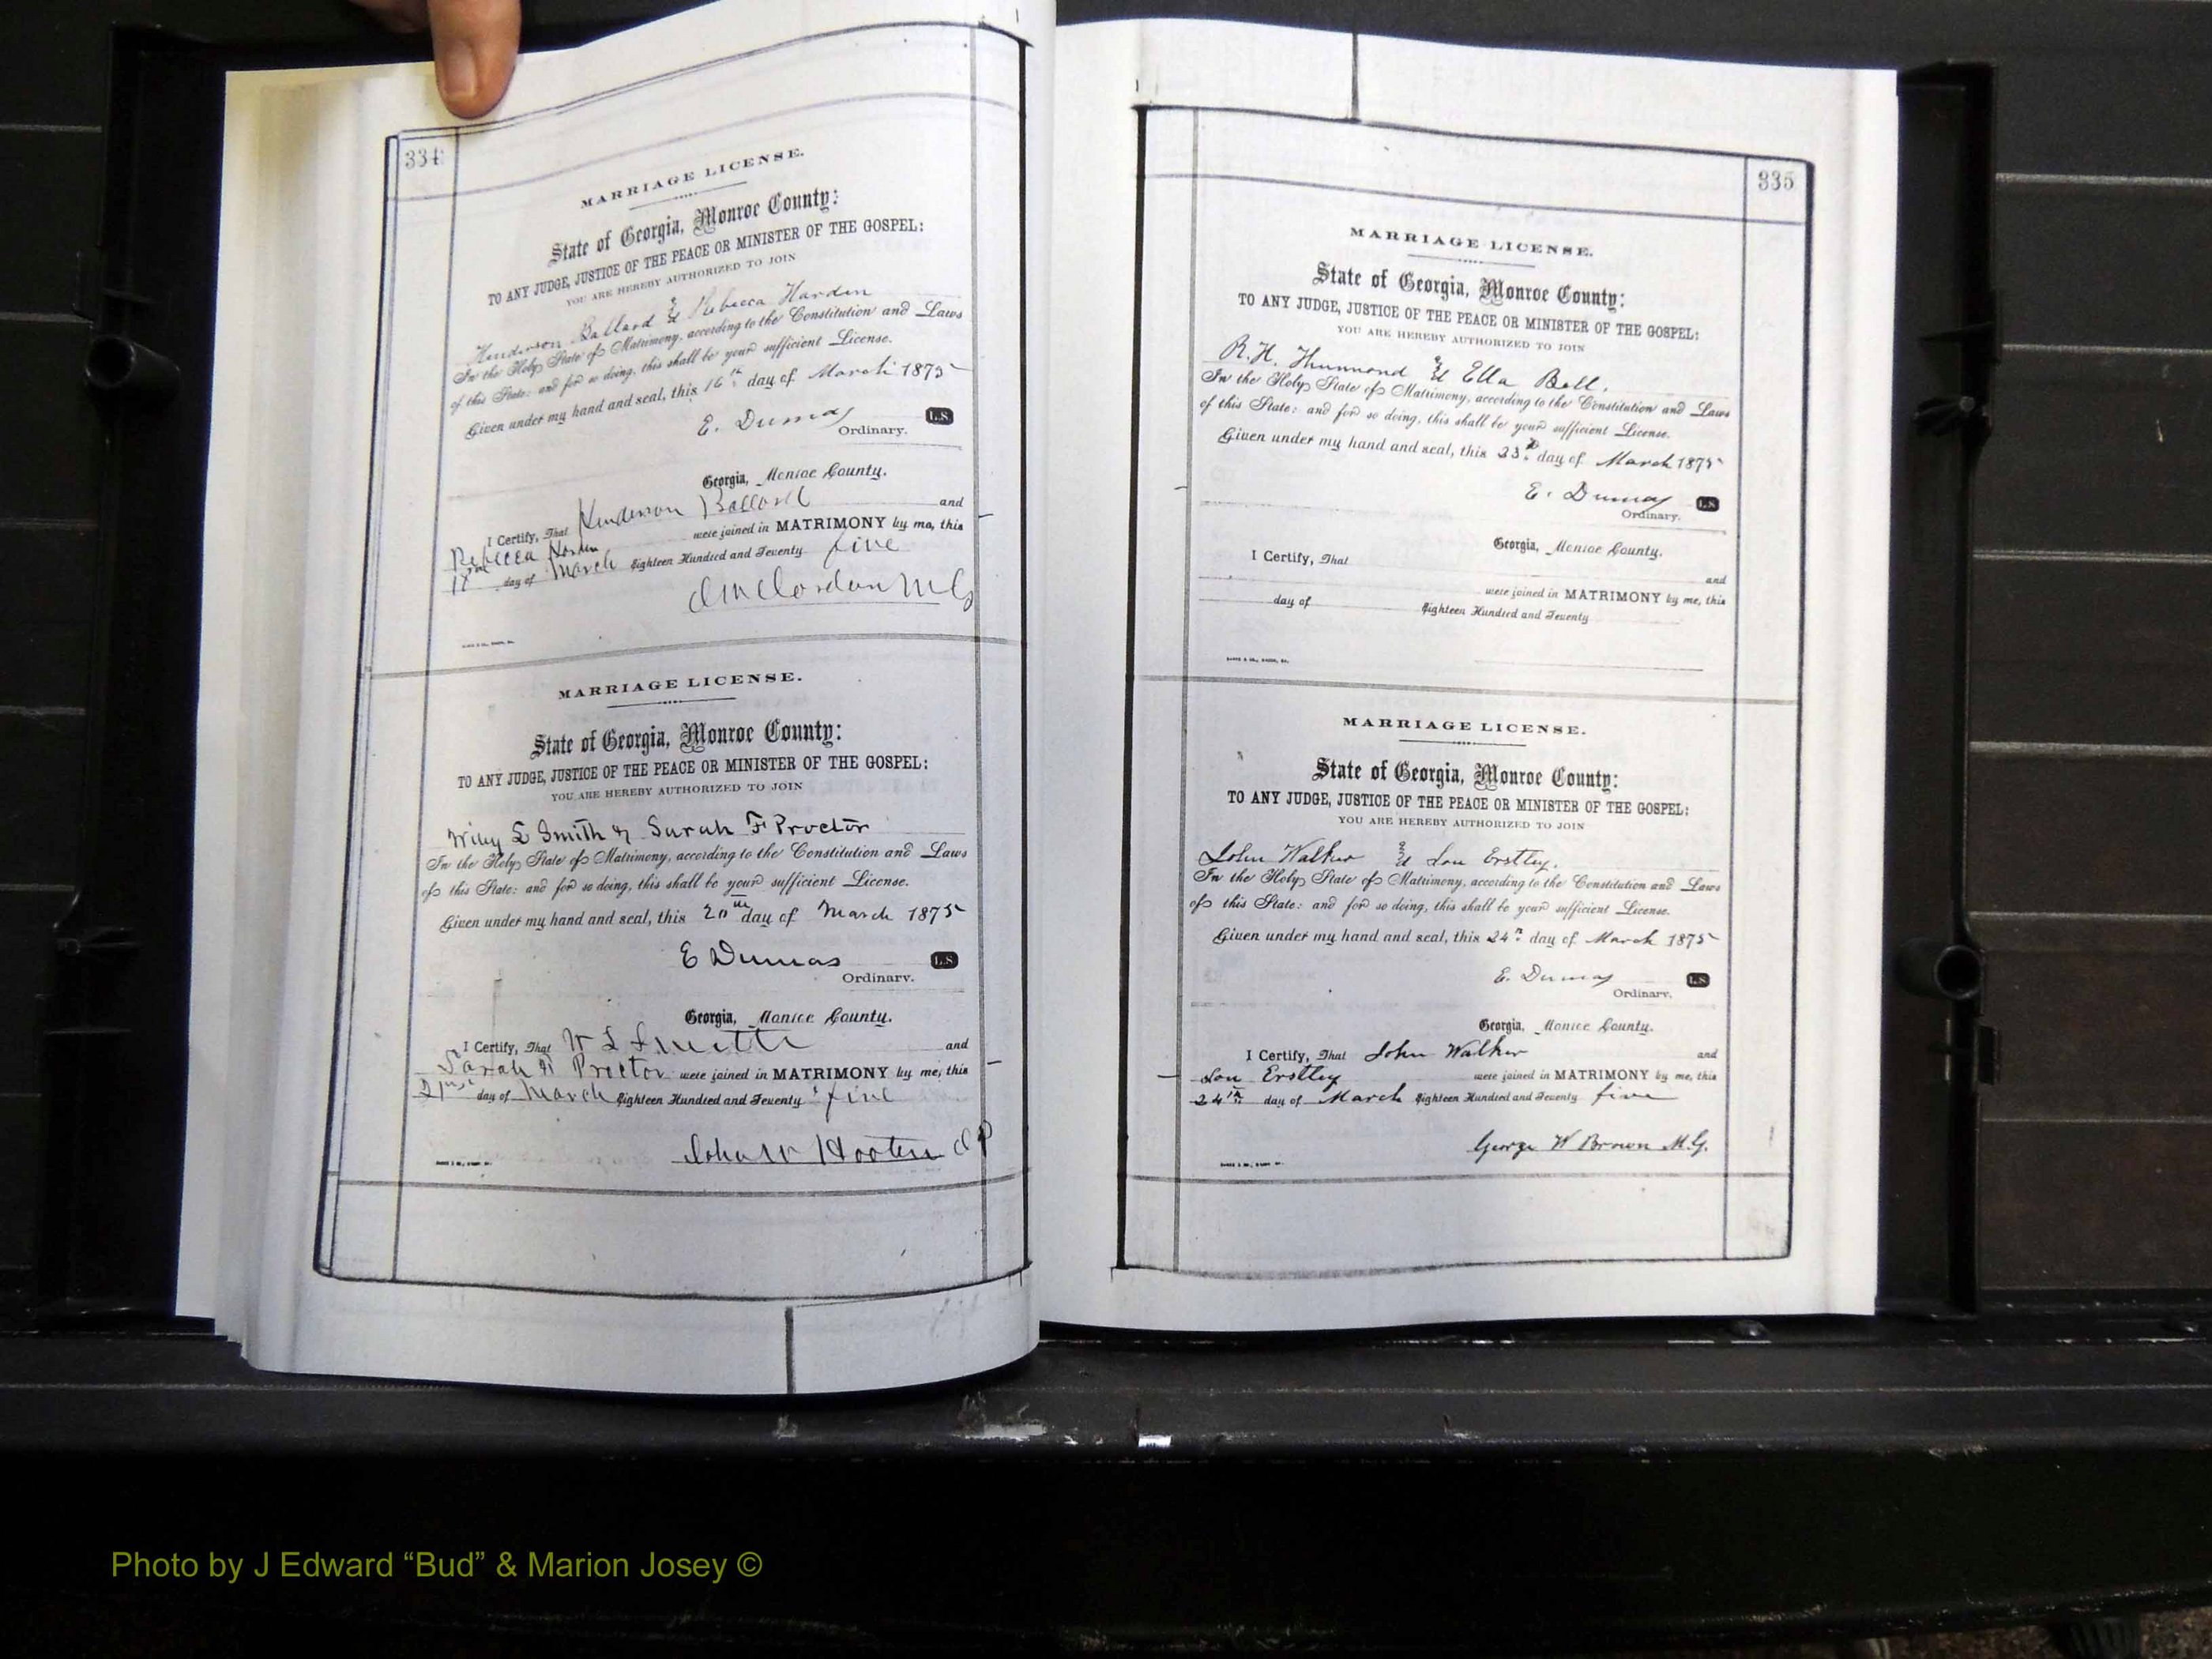 334
MARRIAGE LICENSE.
State of Georgia, Monroe County:
TO ANY JUDGE, JUSTICE OF THE PEACE OR MINISTER OF THE GOSPEL:
YOU ARE HEREBY AUTHORIZED TO JOIN
Henderson Ballard & Rebecca Harden
In the Holy State of Matrimony, according to the Constitution and Laws
of this State: and for so doing, this shall be your sufficient License.
Given under my hand and seal, this 16th day of March 1875
E. Dumas L.S
Ordinary.
Georgia, Monroe County.
I Certify, That Henderson Ballard and
Rebecca Harden were joined in MATRIMONY by me, this
day of March Eighteen Hundred and Seventy five
MG
MARRIAGE LICENSE.
State of Georgia, Monroe County:
TO ANY JUDGE, JUSTICE OF THE PEACE OR MINISTER OF THE GOSPEL:
YOU ARE HEREBY AUTHORIZED TO JOIN
Wiley L Smith & Sarah F Proctor
In the Holy State of Matrimony, according to the Constitution and Laws
of this State: and for so doing, this shall be your sufficient License.
Given under my hand and seal, this 20th day of March 1875
E Dumas L.S
Ordinary.
Georgia, Monroe County.
I Certify, That W L Smith and
Sarah F Proctor were joined in MATRIMONY by me, this
21st day of March Eighteen Hundred and Seventy five
John W Hooten J P
335
MARRIAGE LICENSE.
State of Georgia, Monroe County:
TO ANY JUDGE, JUSTICE OF THE PEACE OR MINISTER OF THE GOSPEL:
YOU ARE HEREBY AUTHORIZED TO JOIN
R. H. Thurmond & Ella Ball.
In the Holy State of Matrimony, according to the Constitution and Laws
of this State: and for so doing, this shall be your sufficient License.
Given under my hand and seal, this 23d day of March 1875
E. Dumas L.S
Ordinary.
Georgia, Monroe County.
I Certify, That
and
were joined in MATRIMONY by me, this
day of Eighteen Hundred and Seventy
MARRIAGE LICENSE.
State of Georgia, Monroe County:
TO ANY JUDGE, JUSTICE OF THE PEACE OR MINISTER OF THE GOSPEL:
YOU ARE HEREBY AUTHORIZED TO JOIN
John Walker & Lou Erstley.
In the Holy State of Matrimony, according to the Constitution and Laws
of this State: and for so doing, this shall be your sufficient License.
Given under my hand and seal, this 24th day of March 1875
E. Dumas L.S
Ordinary.
Georgia, Monroe County.
I Certify, That John Walker and
Lou Erstley were joined in MATRIMONY by me, this
24th day of March Eighteen Hundred and Seventy five
George W Brown M.G.
Photo by J Edward “Bud” & Marion Josey ©